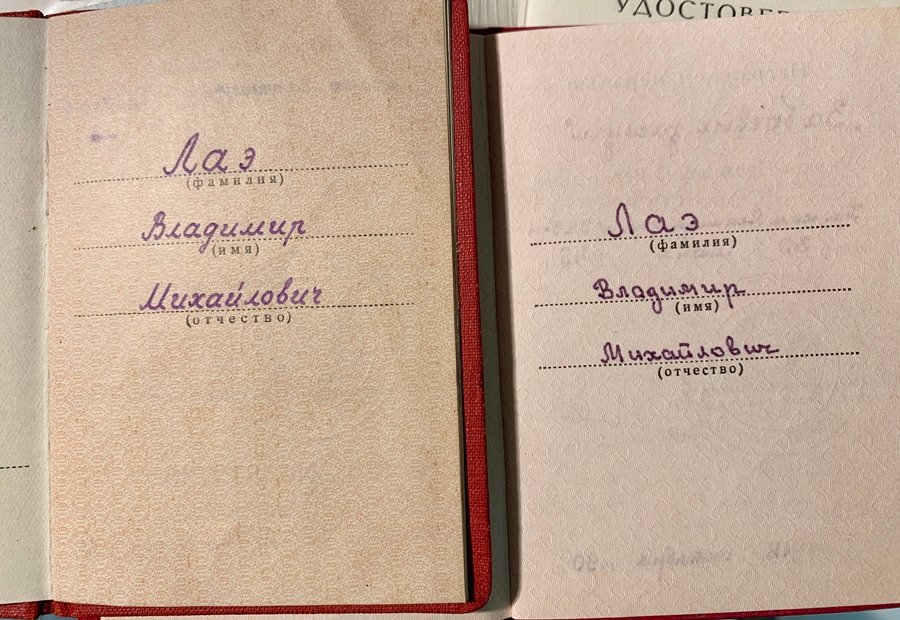 УДОСТОВЕР
Лаэ
(фамилия)
Владимир
(имя)
Михайлович
(отчество)
Лаэ
(фамилия)
Владимир
(имя)
Михайлович
(отчество)